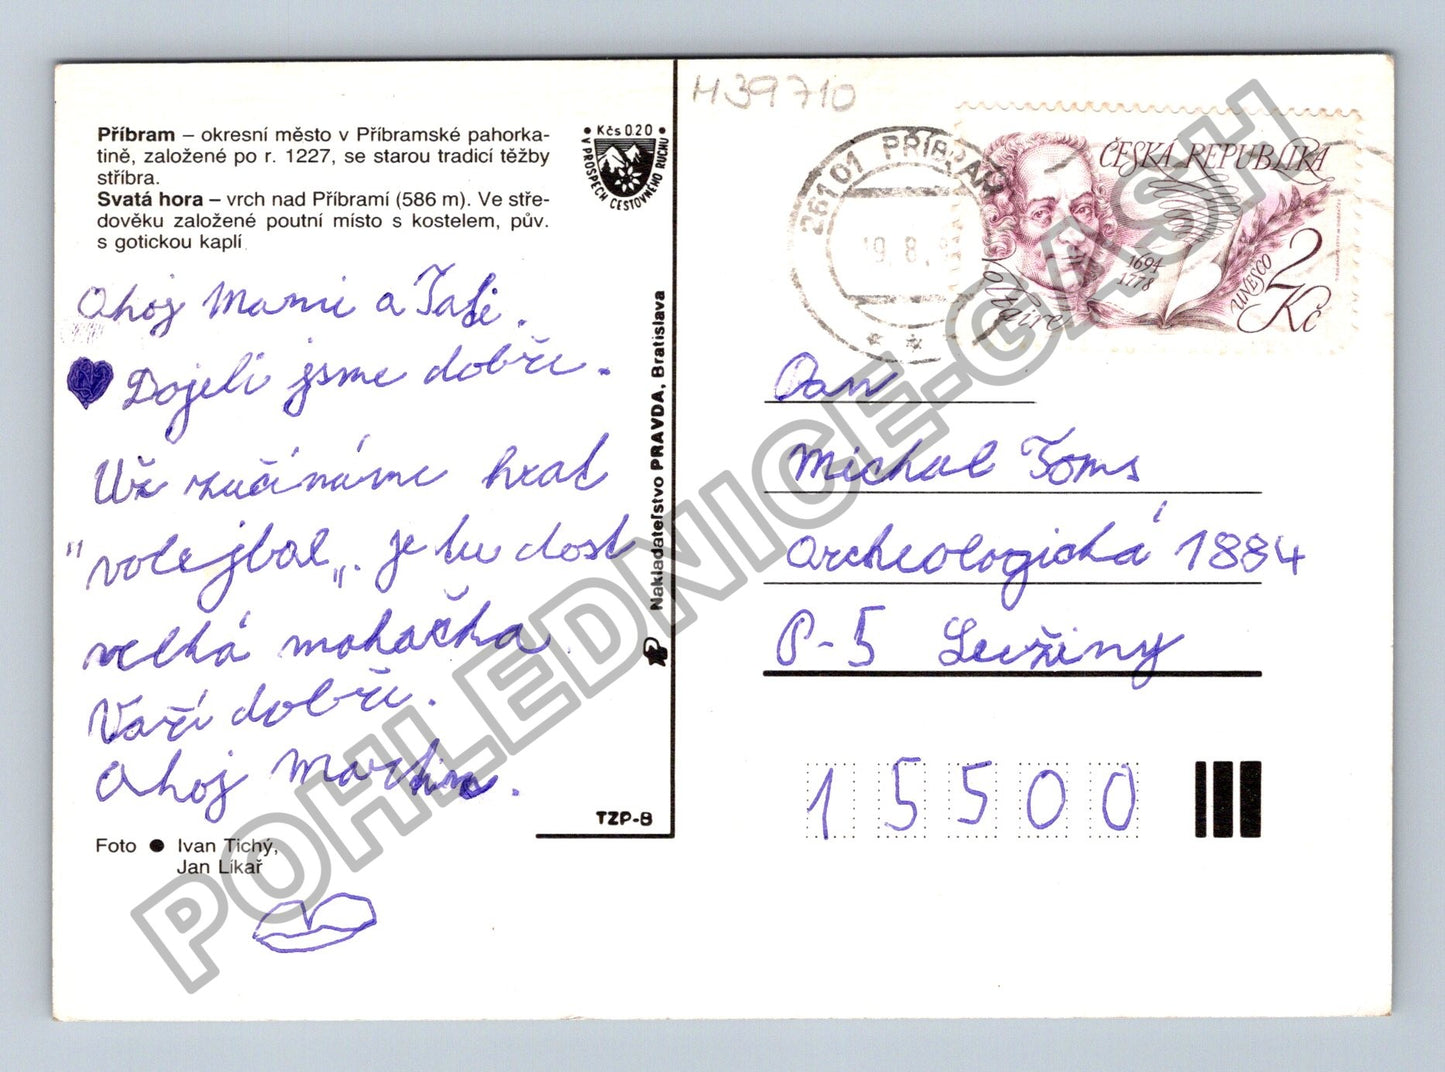 Příbram – okresní město v Příbramské pahorka-
tině, založené po r. 1227, se starou tradicí těžby
stříbra.
Svatá hora – vrch nad Příbramí (586 m). Ve stře-
dověku založené poutní místo s kostelem, pův.
s gotickou kaplí
Kčs 0.20
V PROSPĚCH CESTOVNÉHO RUCHU
Ahoj Mami a Tati.
Dojeli jsme dobře.
Už začínáme hrat
"volejbal„. je tu dost
velká makačka.
Vaří dobře.
Ahoj Martina.
Foto ● Ivan Tichý,
Jan Líkař
TZP-8
Nakladateľstvo PRAVDA, Bratislava
H39710
261 01 PŘÍBRAM
ČESKÁ REPUBLIKA
Voltaire
1694
1778
UNESCO
2 Kč
Pan
Michal Toms
Archeologická 1884
P-5 Lužiny
15500
POHLEDNICE-GASH